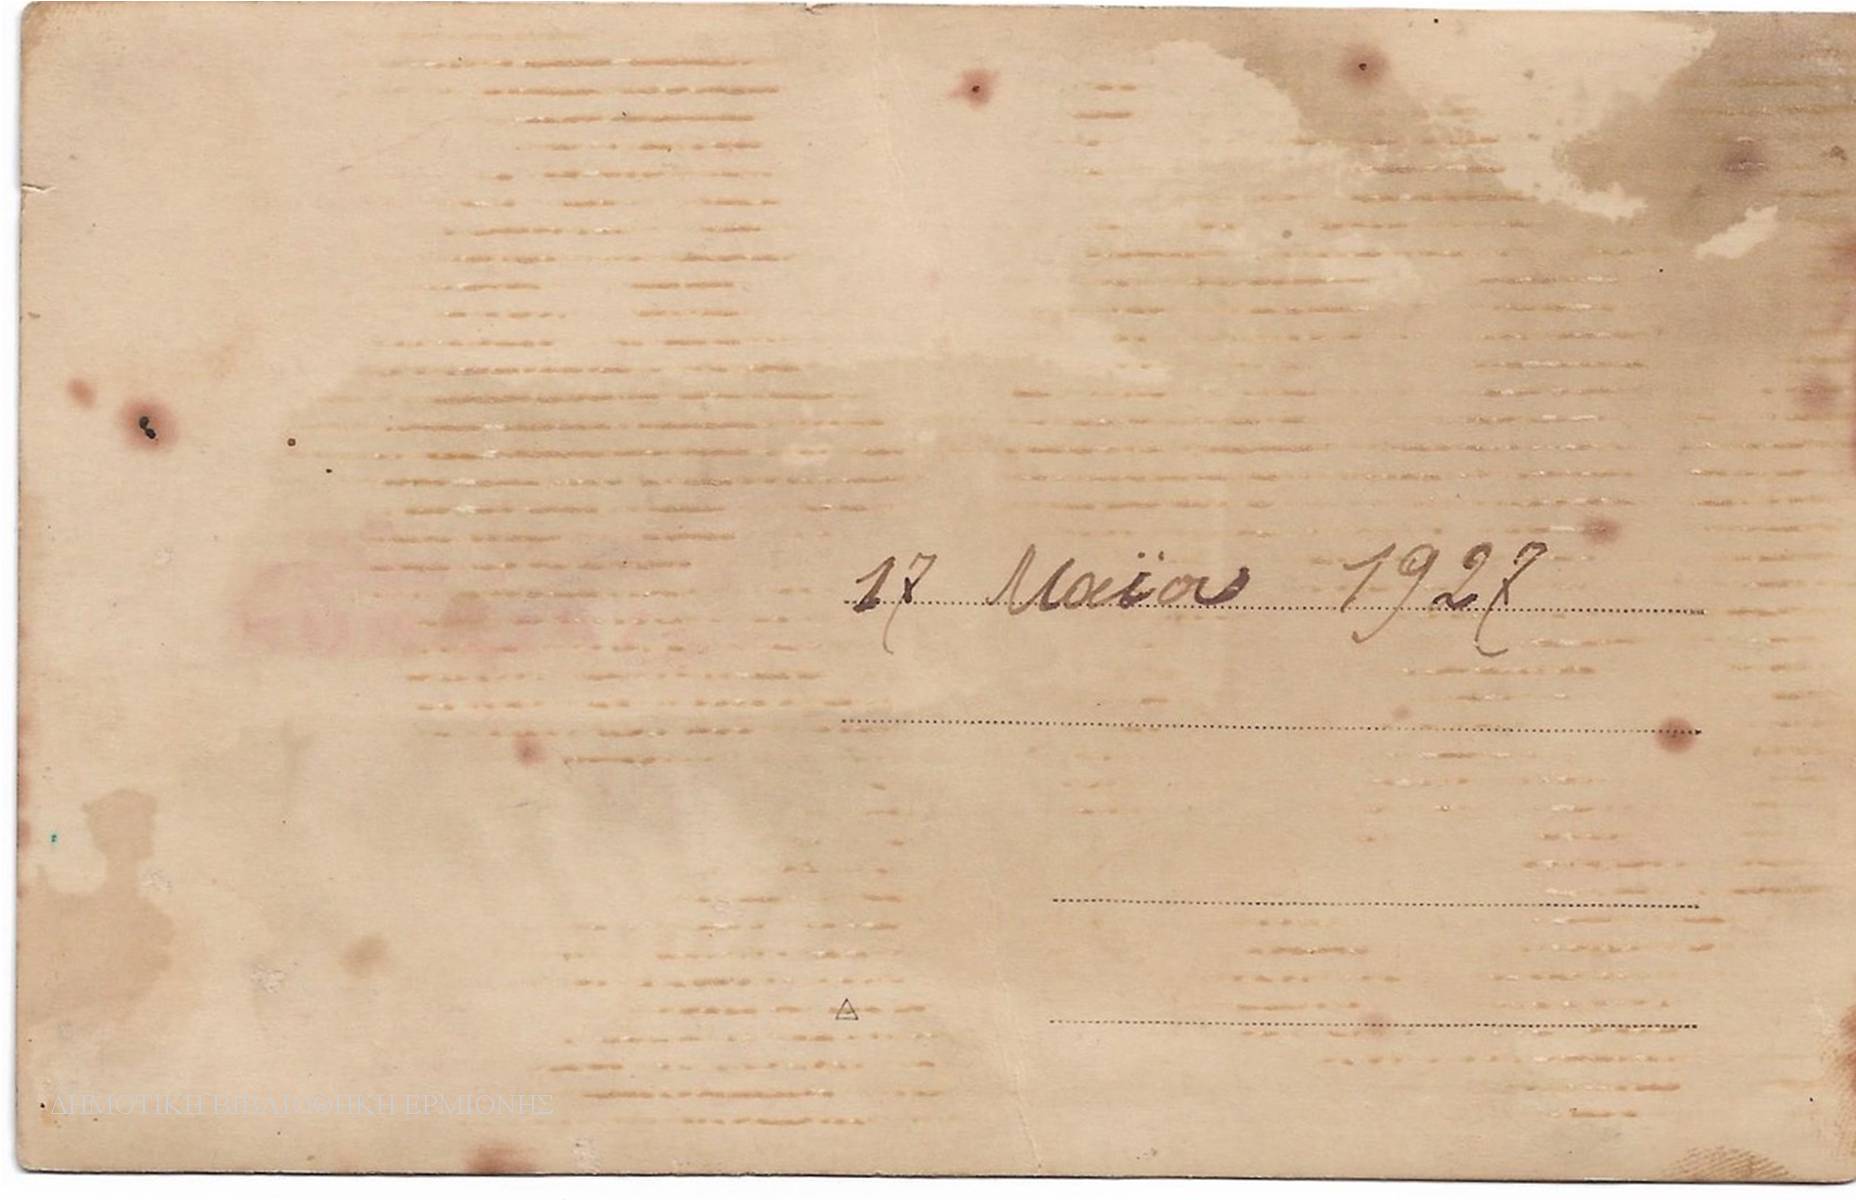 17 Μαΐου 1927
ΔΗΜΟΤΙΚΗ ΒΙΒΛΙΟΘΗΚΗ ΕΡΜΙΟΝΗΣ